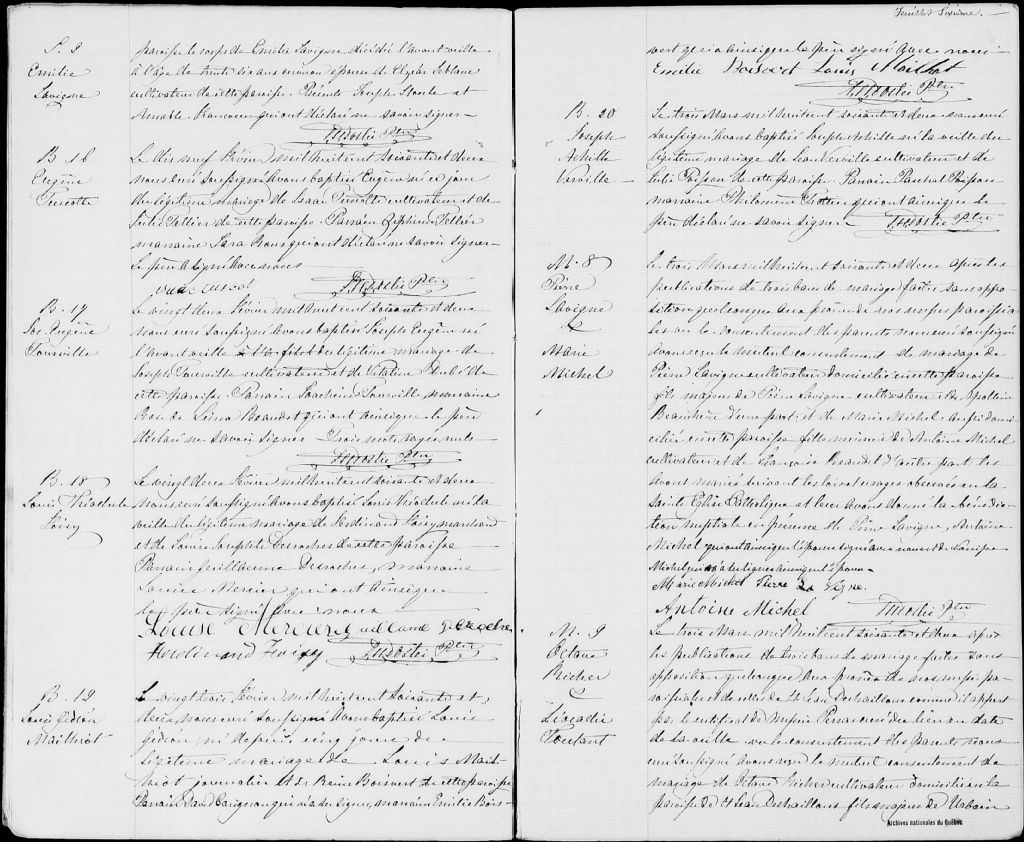 S. 9
Emilie
Lavigne
paroisse le corps de Emilie Lavigne décédée l'avant veille
à l'âge de trente six ans environ épouse de Elzéar Leblanc
cultivateur de cette paroisse. Présents Joseph et
Amable Francoeur qui ont déclaré ne savoir signer
Ptre
B. 16
Eugène
Turcotte
Le dix neuf Février mil huit cent soixante et deux
nous curé soussigné avons baptisé Eugène né ce jour
du légitime mariage de Isaac Turcotte cultivateur et de
Julie Tellier de cette paroisse. Parrain Zéphirin Tellier
marraine Sara qui ont déclaré ne savoir signer
Le père a signé avec nous
Ptre
B. 17
Jos. Eugène
Tourville
Le vingt deux Février mil huit cent soixante et deux
nous curé soussigné avons baptisé Joseph Eugène né
l'avant veille du légitime mariage de
Joseph Tourville cultivateur et de Vitaline Hubé de
cette paroisse Parrain Joachim Tourville marraine
Rose de Lima Beaudet qui ont ainsi que le père
déclaré ne savoir signer Trois mots rayés nuls
Ptre
B. 18
Louis Théodule
Foisy
Le vingt deux Février mil huit cent soixante et deux
Nous curé soussigné avons baptisé Louis Théodule né la
veille du légitime mariage de Ferdinand Foisy marchand
et de Louise Josephte Desroches de cette paroisse
Parrain Guillaume Desroches, marraine
Louise Mercier qui ont ainsi que
le père signé avec nous
Louise Mercier
Ferdinand Foisy Ptre
B. 19
Louis Gédéon
Mailhiot
Le vingt trois Février mil huit cent soixante et
deux nous curé soussigné avons baptisé Louis
Gédéon né depuis cinq jours de
légitime mariage de Louis Mail-
hiot journalier et de Reine Boisvert de cette paroisse
Parrain David Carignan qui n'a su signer, marraine Emilie Bois-
Feuillet Sixième.
vert qui a ainsi que le père signé avec nous
Emélie Boisvert Louis Mailhot
Ptre
B. 20
Joseph
Achille
Verville
Le trois Mars mil huit cent soixante et deux nous curé
soussigné avons baptisé Joseph Achille né la veille du
légitime mariage de Léon Verville cultivateur et de
Julie Poisson de cette paroisse. Parrain Paschal Poisson
marraine Philomène Trottier qui ont ainsi que le
père déclaré ne savoir signer Ptre
M. 8
Pierre
Lavigne
&
Marie
Michel
Le trois Mars mil huit cent soixante et deux après les
publications de trois bans de mariage faites sans oppo-
sition quelconque aux prônes de nos messes paroissia-
les vu le consentement des parents nous curé soussigné
avons reçu le mutuel consentement de mariage de
Pierre Lavigne cultivateur domicilié en cette paroisse
fils majeur de Pierre Lavigne cultivateur et de Apolline
Beauchêne d'une part; et de Marie Michel aussi domi-
ciliée en cette paroisse fille mineure de Antoine Michel
cultivateur et de Françoise d'autre part. les
avons mariés suivant les lois et usages observés en la
Sainte Eglise Catholique et leur avons donné la bénédic-
tion nuptiale en présence de Pierre Lavigne, Antoine
Michel qui ont ainsi que l'épouse signé avec nous et de
Michel qui n'a su signer ainsi que l'époux
Marie Michel Pierre La vigne.
Antoine Michel Ptre
M. 9
Octave
Richer
&
Léocadie
Toutant
Le trois Mars mil huit cent soixante et deux après
les publications de trois bans de mariage faites sans
opposition quelconque aux prônes de nos messes pa-
roissiales et de celles de St Jean Deschaillons comme il appert
par le certificat de Messire curé du lieu en date
de la veille vu le consentement des parents nous
curé soussigné avons reçu le mutuel consentement de
mariage de Octave Richer cultivateur domicilié en la
paroisse de St Jean Deschaillons fils majeur de Urbain
Archives nationales du Québec